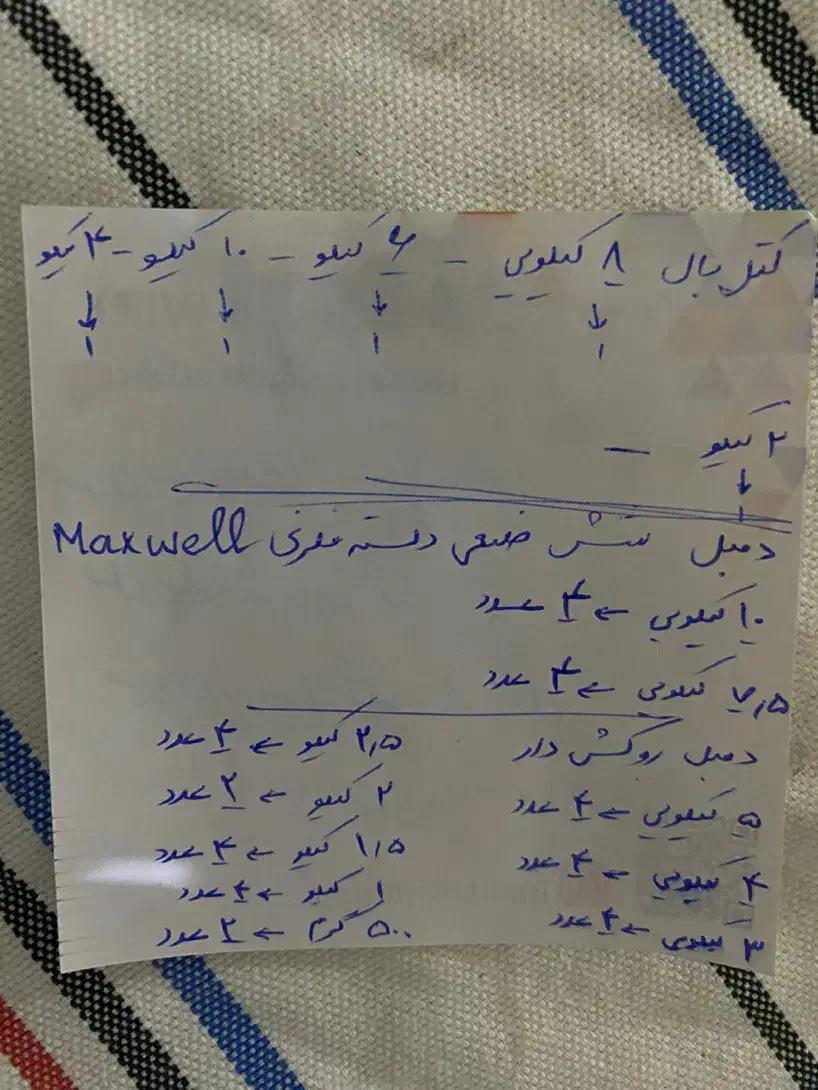 کتل بال ۸ کیلویی - ۶ کیلو - ۱۰ کیلو - ۴ کیلو
↓ ↓ ↓ ↓
۱ ۱ ۱ ۱
۲ کیلو -
↓
۱
دمبل شش ضلعی دسته فلزی Maxwell
۱۰ کیلویی ← ۴ عدد
۷,۵ کیلویی ← ۴ عدد
دمبل روکش دار
۵ کیلویی ← ۴ عدد
۴ کیلویی ← ۴ عدد
۳ کیلویی ← ۴ عدد
۲,۵ کیلو ← ۴ عدد
۲ کیلو ← ۲ عدد
۱,۵ کیلو ← ۴ عدد
۱ کیلو ← ۴ عدد
۵۰۰ گرم ← ۲ عدد